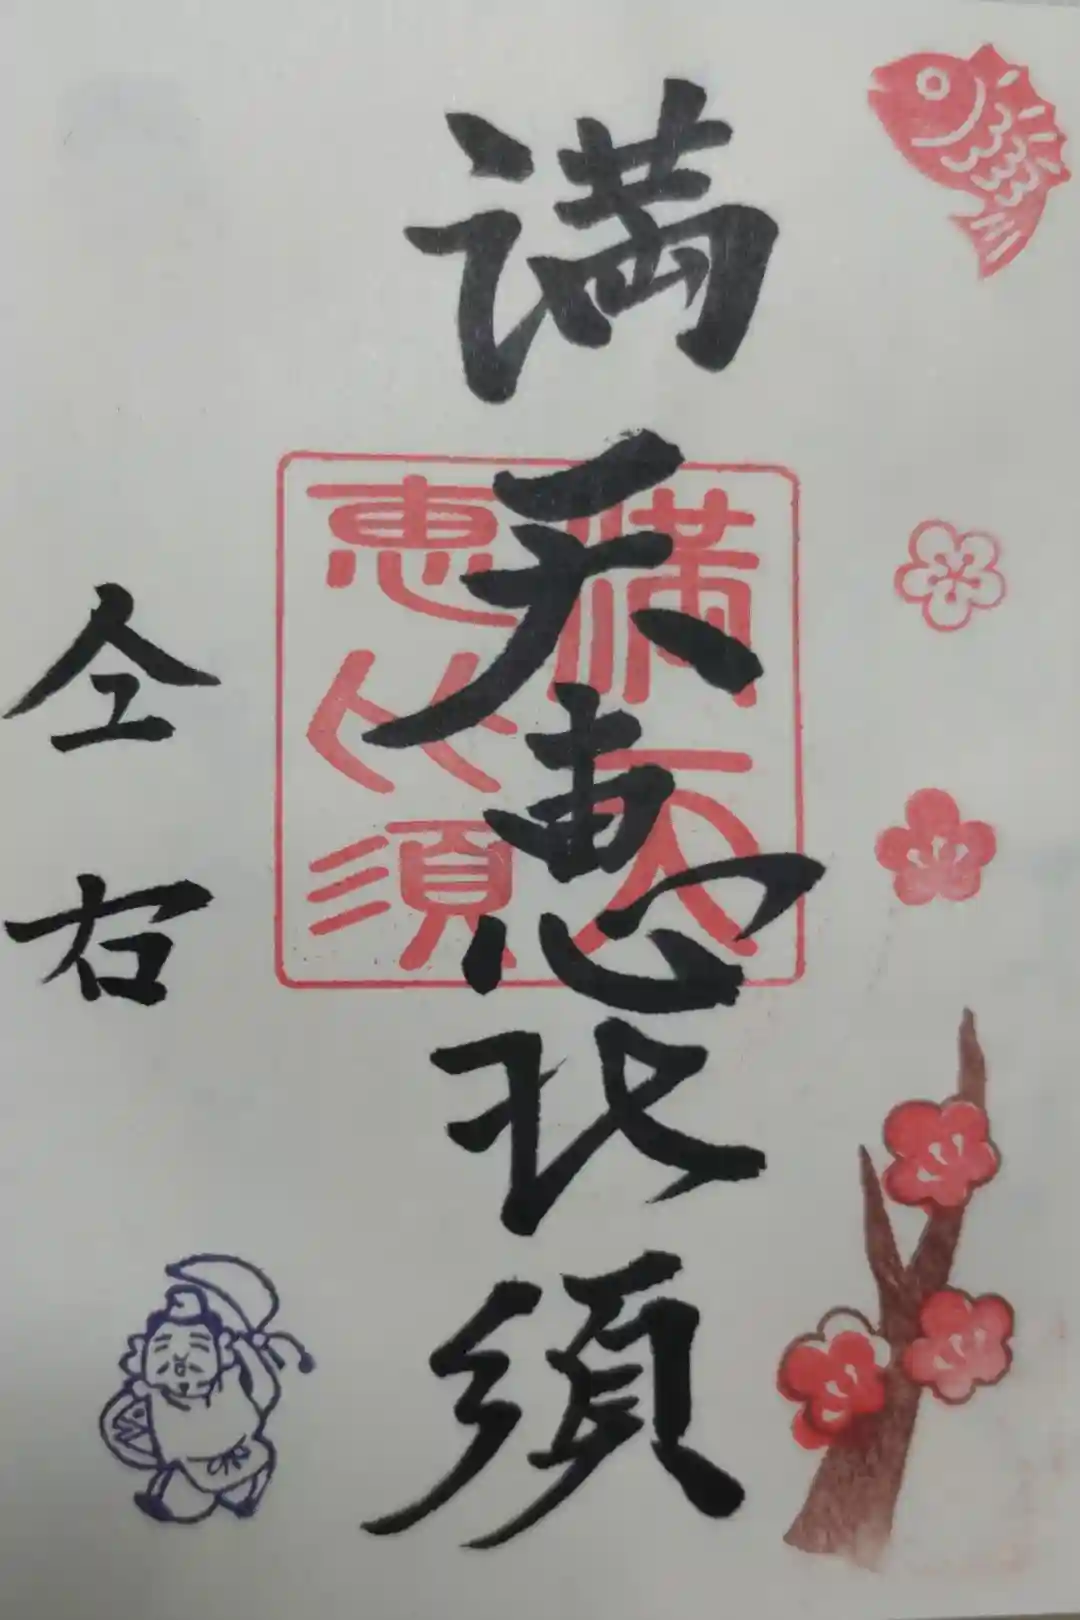 満天恵比須
仝右
満天
恵比須